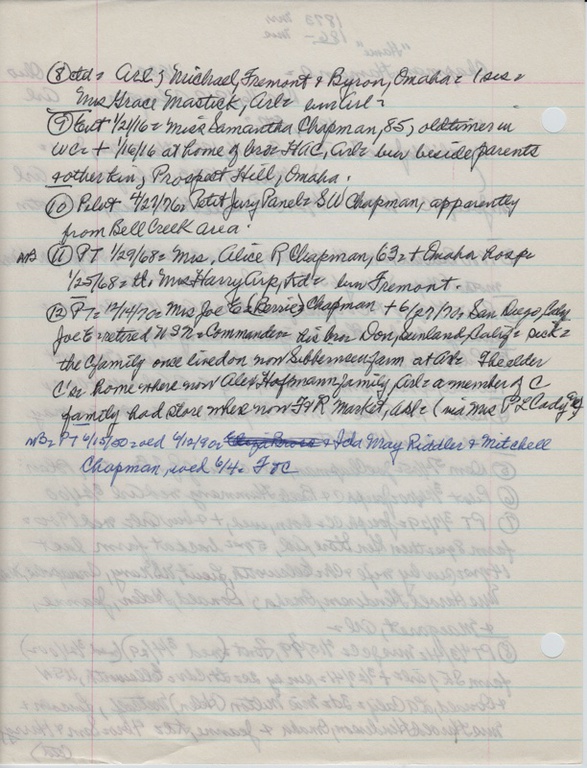 (8) Ard = Arl = ; Michael, Fremont & Byron, Omaha = 1 sis =
Mrs Grace Mastick, Arl =
(9) Ent 1/21/16 = Miss Samantha Chapman, 85, oldtimer in
WC = + 1/16/16 at home of bro = HAC, Arl = bur beside parents
& other kin, Prospect Hill, Omaha.
(10) Pilot 4/27/76 = Petit Jury Panel = SW Chapman, apparently
from Bell Creek area.
NB (11) PT 1/29/68 = Mrs. Alice R Chapman, 63 = + Omaha hosp =
1/25/68 = Mrs Harry Arp, = bur Fremont.
(12) PT = 12/14/70 = Mrs Joe E = (Bernice) Chapman + 6/27/70 = San Diego, Calif
Joe E = retired USN = Commander = his bro Don, Sunland, Calif =
the C family once lived on now farm at Arl = The elder
C's home where now Alex Hoffmann family, Arl = a member of C
family had store where now F&R Market, Arl = (via Mrs P L Cady)
NB = PT 6/15/00 = wed 6/12/90 & Ida May Riddler & Mitchell
Chapman, wed 6/4 =